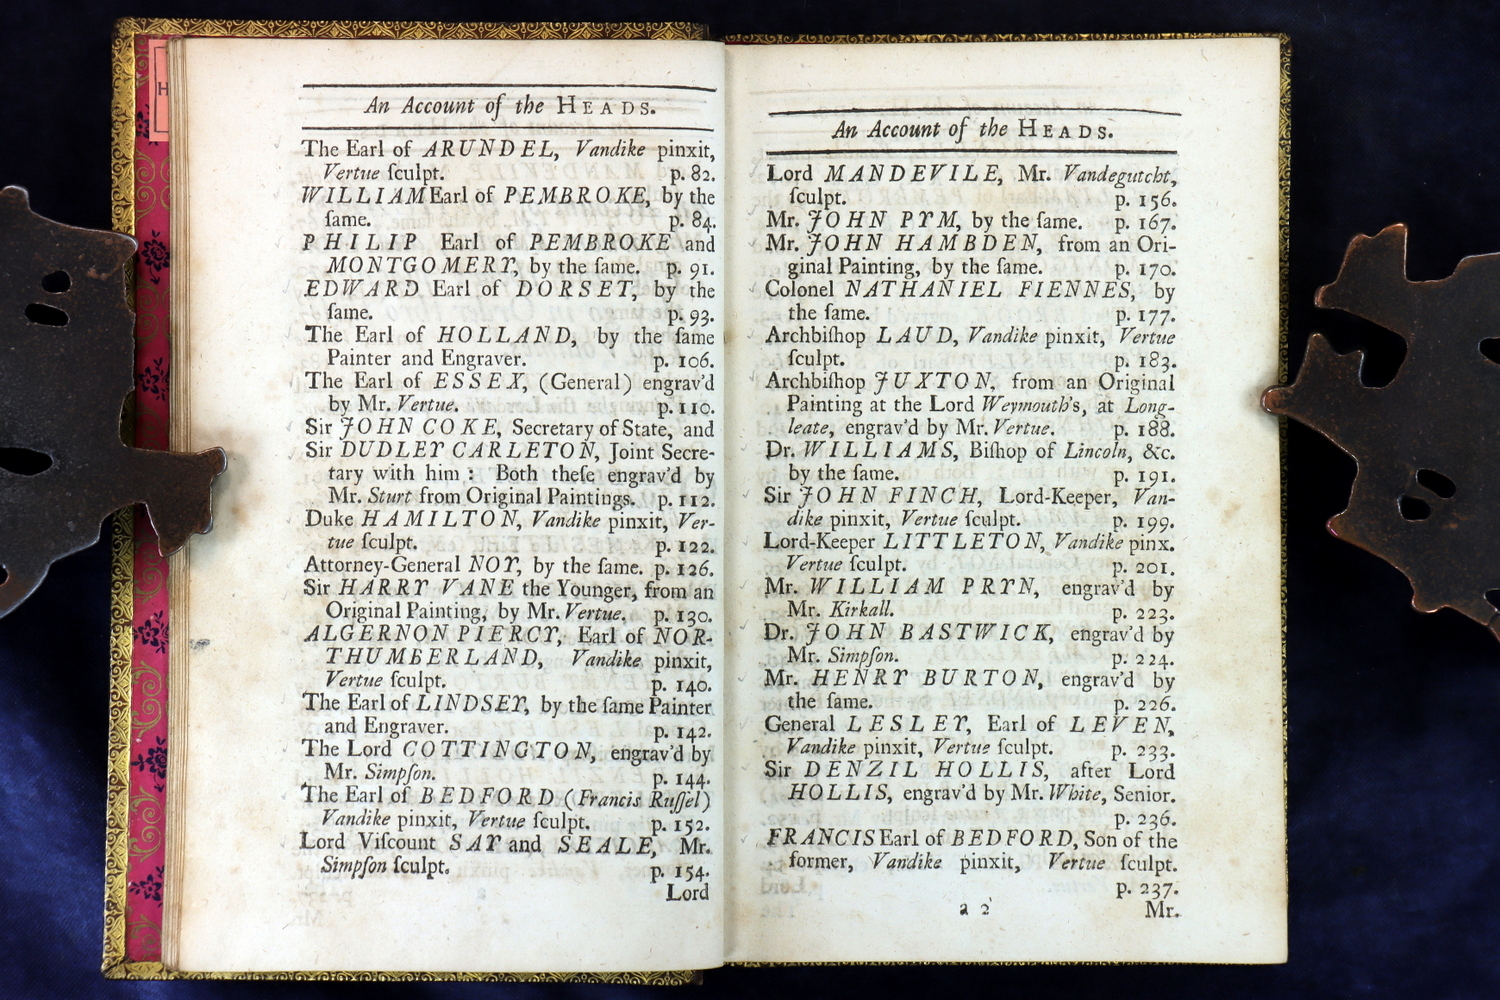 H
An Account of the HEADS.
The Earl of ARUNDEL, Vandike pinxit,
Vertue ſculpt. p. 82.
WILLIAM Earl of PEMBROKE, by the
ſame. p. 84.
PHILIP Earl of PEMBROKE and
MONTGOMERY, by the ſame. p. 91.
EDWARD Earl of DORSET, by the
ſame. p. 93.
The Earl of HOLLAND, by the ſame
Painter and Engraver. p. 106.
The Earl of ESSEX, (General) engrav'd
by Mr. Vertue. p. 110.
Sir JOHN COKE, Secretary of State, and
Sir DUDLEY CARLETON, Joint Secre-
tary with him : Both theſe engrav'd by
Mr. Sturt from Original Paintings. p. 112.
Duke HAMILTON, Vandike pinxit, Ver-
tue ſculpt. p. 122.
Attorney-General NOY, by the ſame. p. 126.
Sir HARRY VANE the Younger, from an
Original Painting, by Mr. Vertue. p. 130.
ALGERNON PIERCY, Earl of NOR-
THUMBERLAND, Vandike pinxit,
Vertue ſculpt. p. 140.
The Earl of LINDSEY, by the ſame Painter
and Engraver. p. 142.
The Lord COTTINGTON, engrav'd by
Mr. Simpſon. p. 144.
The Earl of BEDFORD (Francis Ruſſel)
Vandike pinxit, Vertue ſculpt. p. 152.
Lord Viſcount SAY and SEALE, Mr.
Simpſon ſculpt. p. 154.
Lord
An Account of the HEADS.
Lord MANDEVILE, Mr. Vandegutcht,
ſculpt. p. 156.
Mr. JOHN PYM, by the ſame. p. 167.
Mr. JOHN HAMBDEN, from an Ori-
ginal Painting, by the ſame. p. 170.
Colonel NATHANIEL FIENNES, by
the ſame. p. 177.
Archbiſhop LAUD, Vandike pinxit, Vertue
ſculpt. p. 183.
Archbiſhop JUXTON, from an Original
Painting at the Lord Weymouth's, at Long-
leate, engrav'd by Mr. Vertue. p. 188.
Dr. WILLIAMS, Biſhop of Lincoln, &c.
by the ſame. p. 191.
Sir JOHN FINCH, Lord-Keeper, Van-
dike pinxit, Vertue ſculpt. p. 199.
Lord-Keeper LITTLETON, Vandike pinx.
Vertue ſculpt. p. 201.
Mr. WILLIAM PRYN, engrav'd by
Mr. Kirkall. p. 223.
Dr. JOHN BASTWICK, engrav'd by
Mr. Simpſon. p. 224.
Mr. HENRY BURTON, engrav'd by
the ſame. p. 226.
General LESLEY, Earl of LEVEN,
Vandike pinxit, Vertue ſculpt. p. 233.
Sir DENZIL HOLLIS, after Lord
HOLLIS, engrav'd by Mr. White, Senior.
p. 236.
FRANCIS Earl of BEDFORD, Son of the
former, Vandike pinxit, Vertue ſculpt.
p. 237.
a 2 Mr.